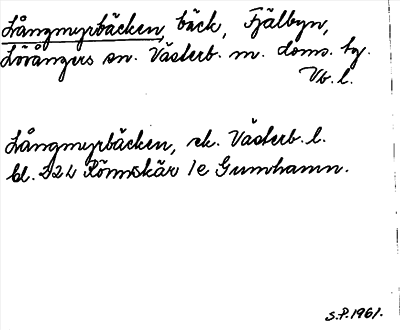 Långmyrbäcken, bäck, Fjälbyn,
Lövångers sn. Västerb. m. doms. tg.
Vb. l.
Långmyrbäcken, ek. Västerb. l.
bl. 222 Rönnskär 1e Gumhamn.
S.P. 1961.